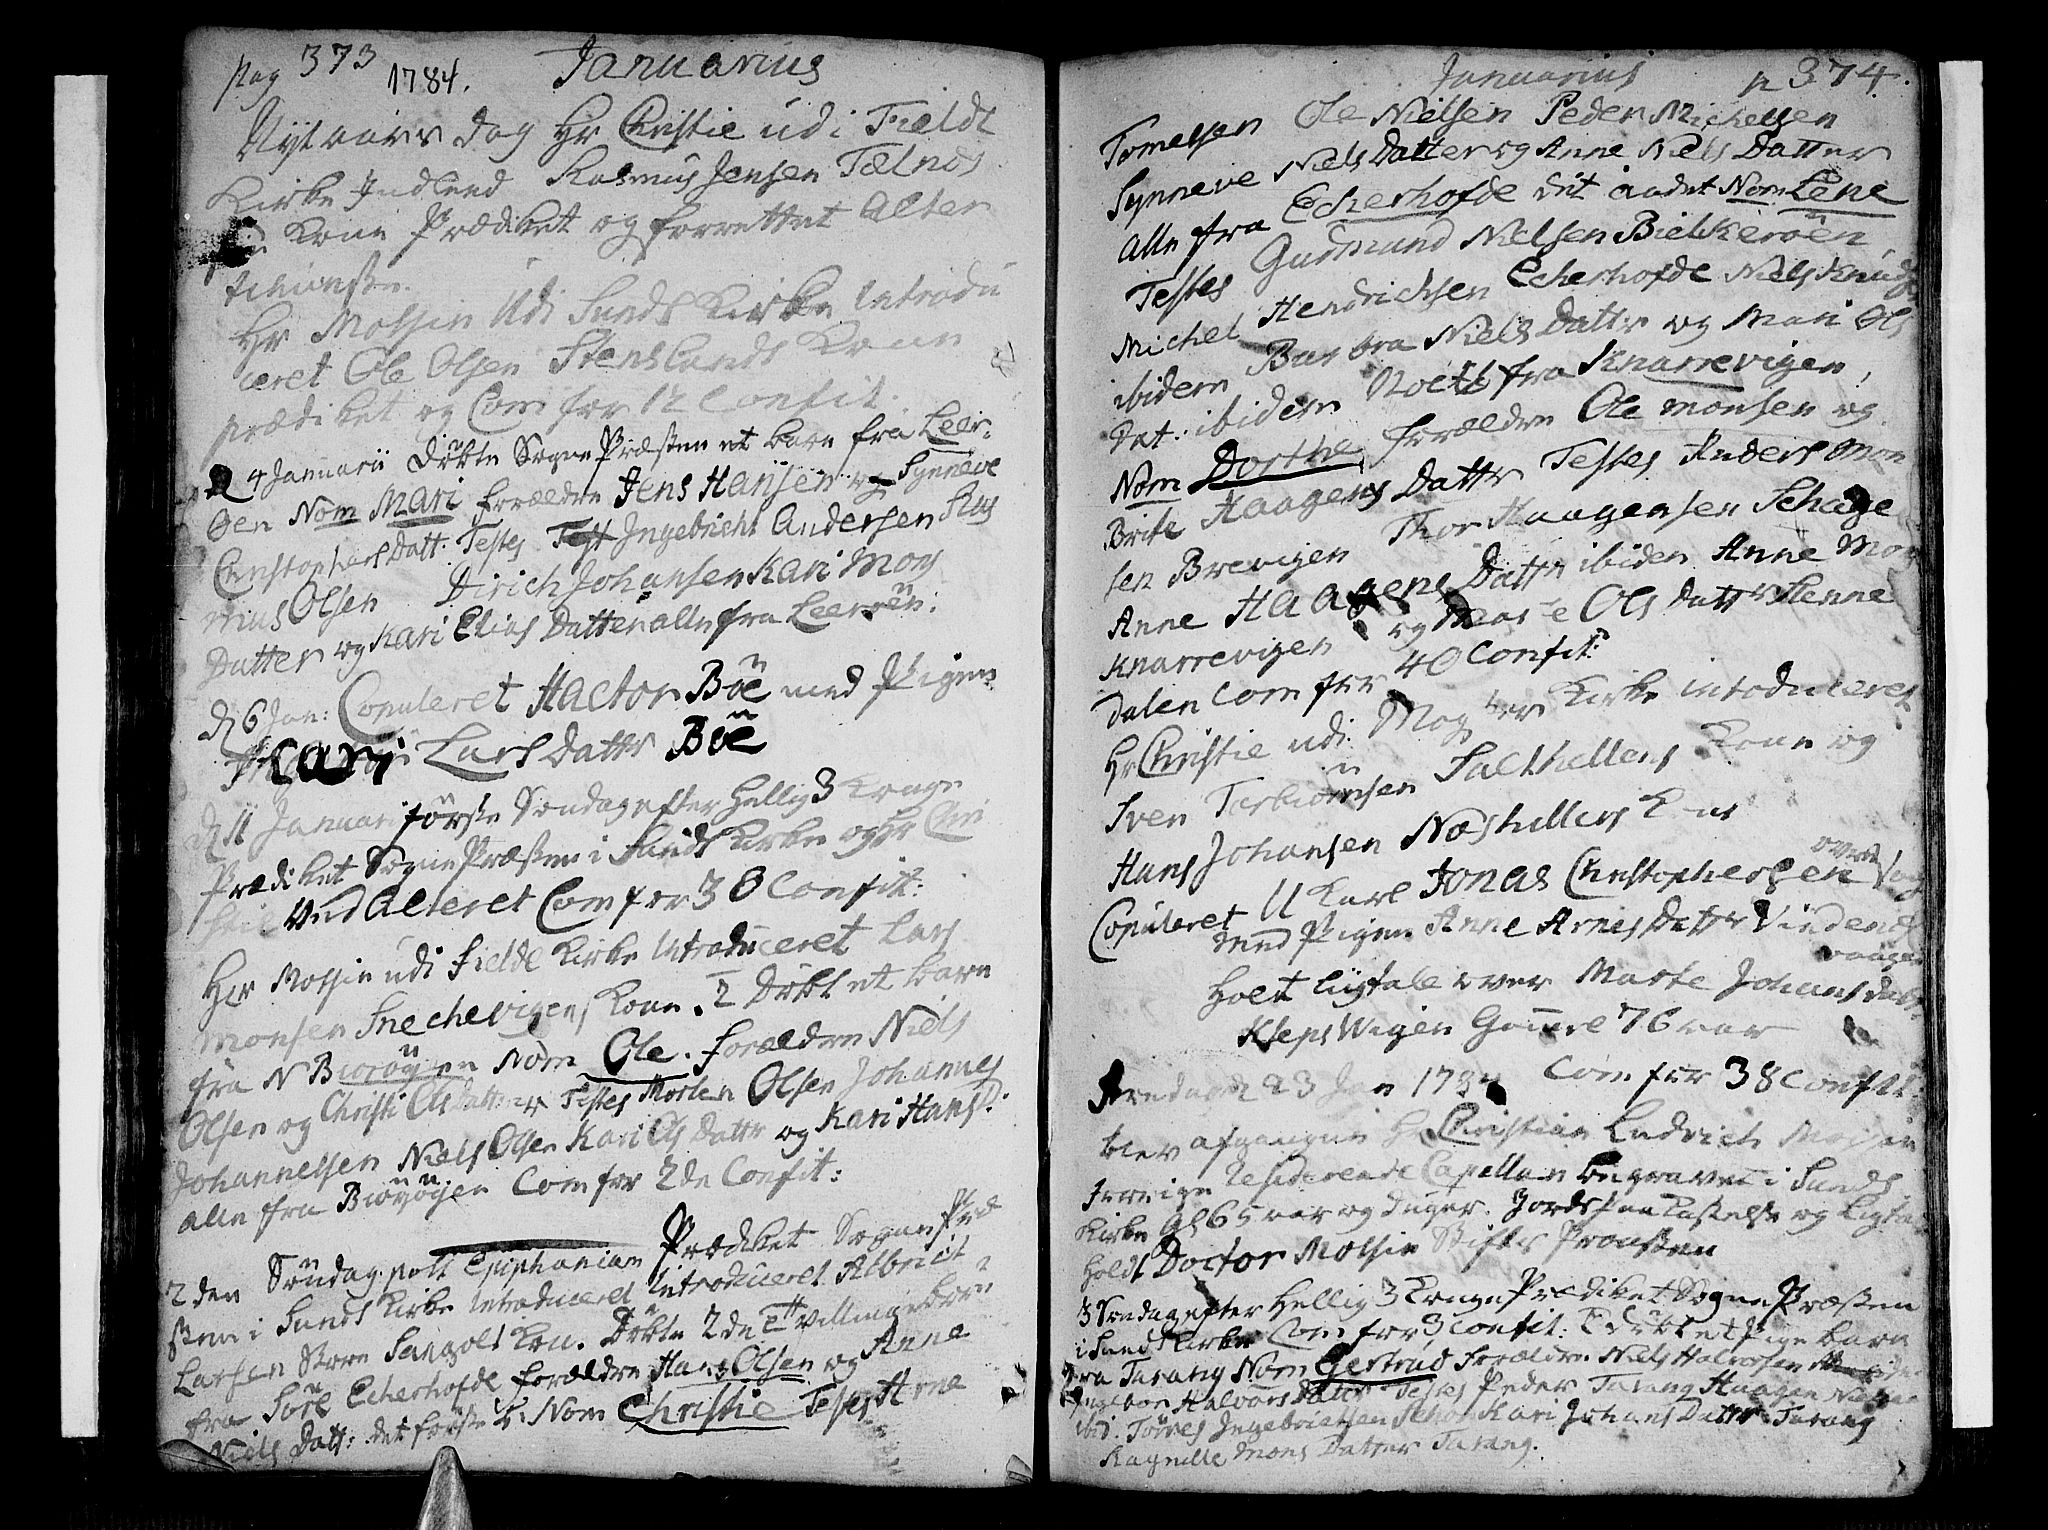 pag 373 1784. Januarius
Nytaars Dag Hr Christie udi Fieldt
Kirke Indleed Rasmus Jensen Tælnæs
Kone Prædiket og forrettet Alter
Hr Mossin Udi Sunds Kirke Introdu
ceret Ole Olsen Stenslands Kone
prædiket og Com for 12 Confit.
4 Januarii Döbte Sogne Præsten et barn fra Leer-
öen Nom Mari forældre Jens Hansen og Synneve
Christophers Datt: Testes Ingebricht Andersen Ras
mus Olsen Dirich Johansen Kari Mons
Datter og Kari Elias Datter alle fra Leeröen.
D 6 Jan: Copuleret Hactor Böe med Pigen
Kari Lars Datter Böe
D 11 Januari förste Söndag efter Hellig 3 Konge
Prædiket Sogne Præsten i Sunds Kirke og Hr Chri
stie Alteret Com for 38 Confit:
Her Mossin udi Fielde Kirke Introduceret Lars
Monsen Snechevigens Kone. 2 Döbt et barn
fra N Biöröyen Nom Ole. forældre Niels
Olsen og Christi Ols Datter Testes Morten Olsen Johannes
Johannessen Niels Olsen Kari Ols Datter og Kari Hans D:
alle fra Biöröyen Com for 2de Confit:
2den Söndag post Epiphaniam Prædiket Sogne Præ
sten i Sunds Kirke Introduceret Introduceret Albricht
Larsen Store Sangolt Kone. Döbte 2de Tvillinge Börn
fra Söre Echerhofde forældre Hans Olsen og Anne
Niels Datt: det förste B: Nom Christie Testes Arne
Januarius p 374.
Tomessen Ole Nielsen Peder Michelsen
Synneve Niels Datter og Anne Niels Datter
alle fra Echerhofde det andet Nom Lene
Testes Gudmund Nielsen Bielkeröen
Michel Hendrichsen Echerhofde Niels Knuds
ibidem Barbra Niels Datter og Mari Ols
Dat: ibidem Noch fra Knarrevigen,
Nom Dorthe forældre Ole Monsen og
Brite Haagens Datter Testes Anders Mon
sen Brevigen Thor Haagensen Schage
Anne Haagens Datter ibiden Anne Mons
Knarrevigen og Marte Ols Datter Stenne
dalen Com for 40 Confit:
Hr Christie udi Mogster Kirke introduceret
Sven Torbiörnsen Salthellens Kone og
Hans Johansen Næshellens K
Copuleret U Karl Jonas Christophersen
med Pigen Anne Arnes Datter Vindenes
vaagen
Holt Liigtale over Marte Johans dat.
Klepsvigen Gamel 76 aar
Fredagen 23 Jan 1784 Com for 38 Confit:
blev afgangne Hr Christian Ludvich Mossin
forrige residerende Capellan begravet i Sunds
Kirke Gl 65 aar og Dager. Jords Paakastelse og Ligtale
holdt Doctor Mossin Stifts Provsten
3 Söndag efter Hellig 3 Konge Prædiket Sogne Præsten
i Sunds Kirke Com for 3 Confit: Döbt et Pige barn
fra Tarang Nom Gertrud Forældre Niels Halvorsen
Ingebor Halvors Datter Testes Peder Tarang Haagen Nielsen
ibid. Törres Ingebrictsen Schog Kari Johans Datter Tarang
Ragnille Mons Datter Tarang.